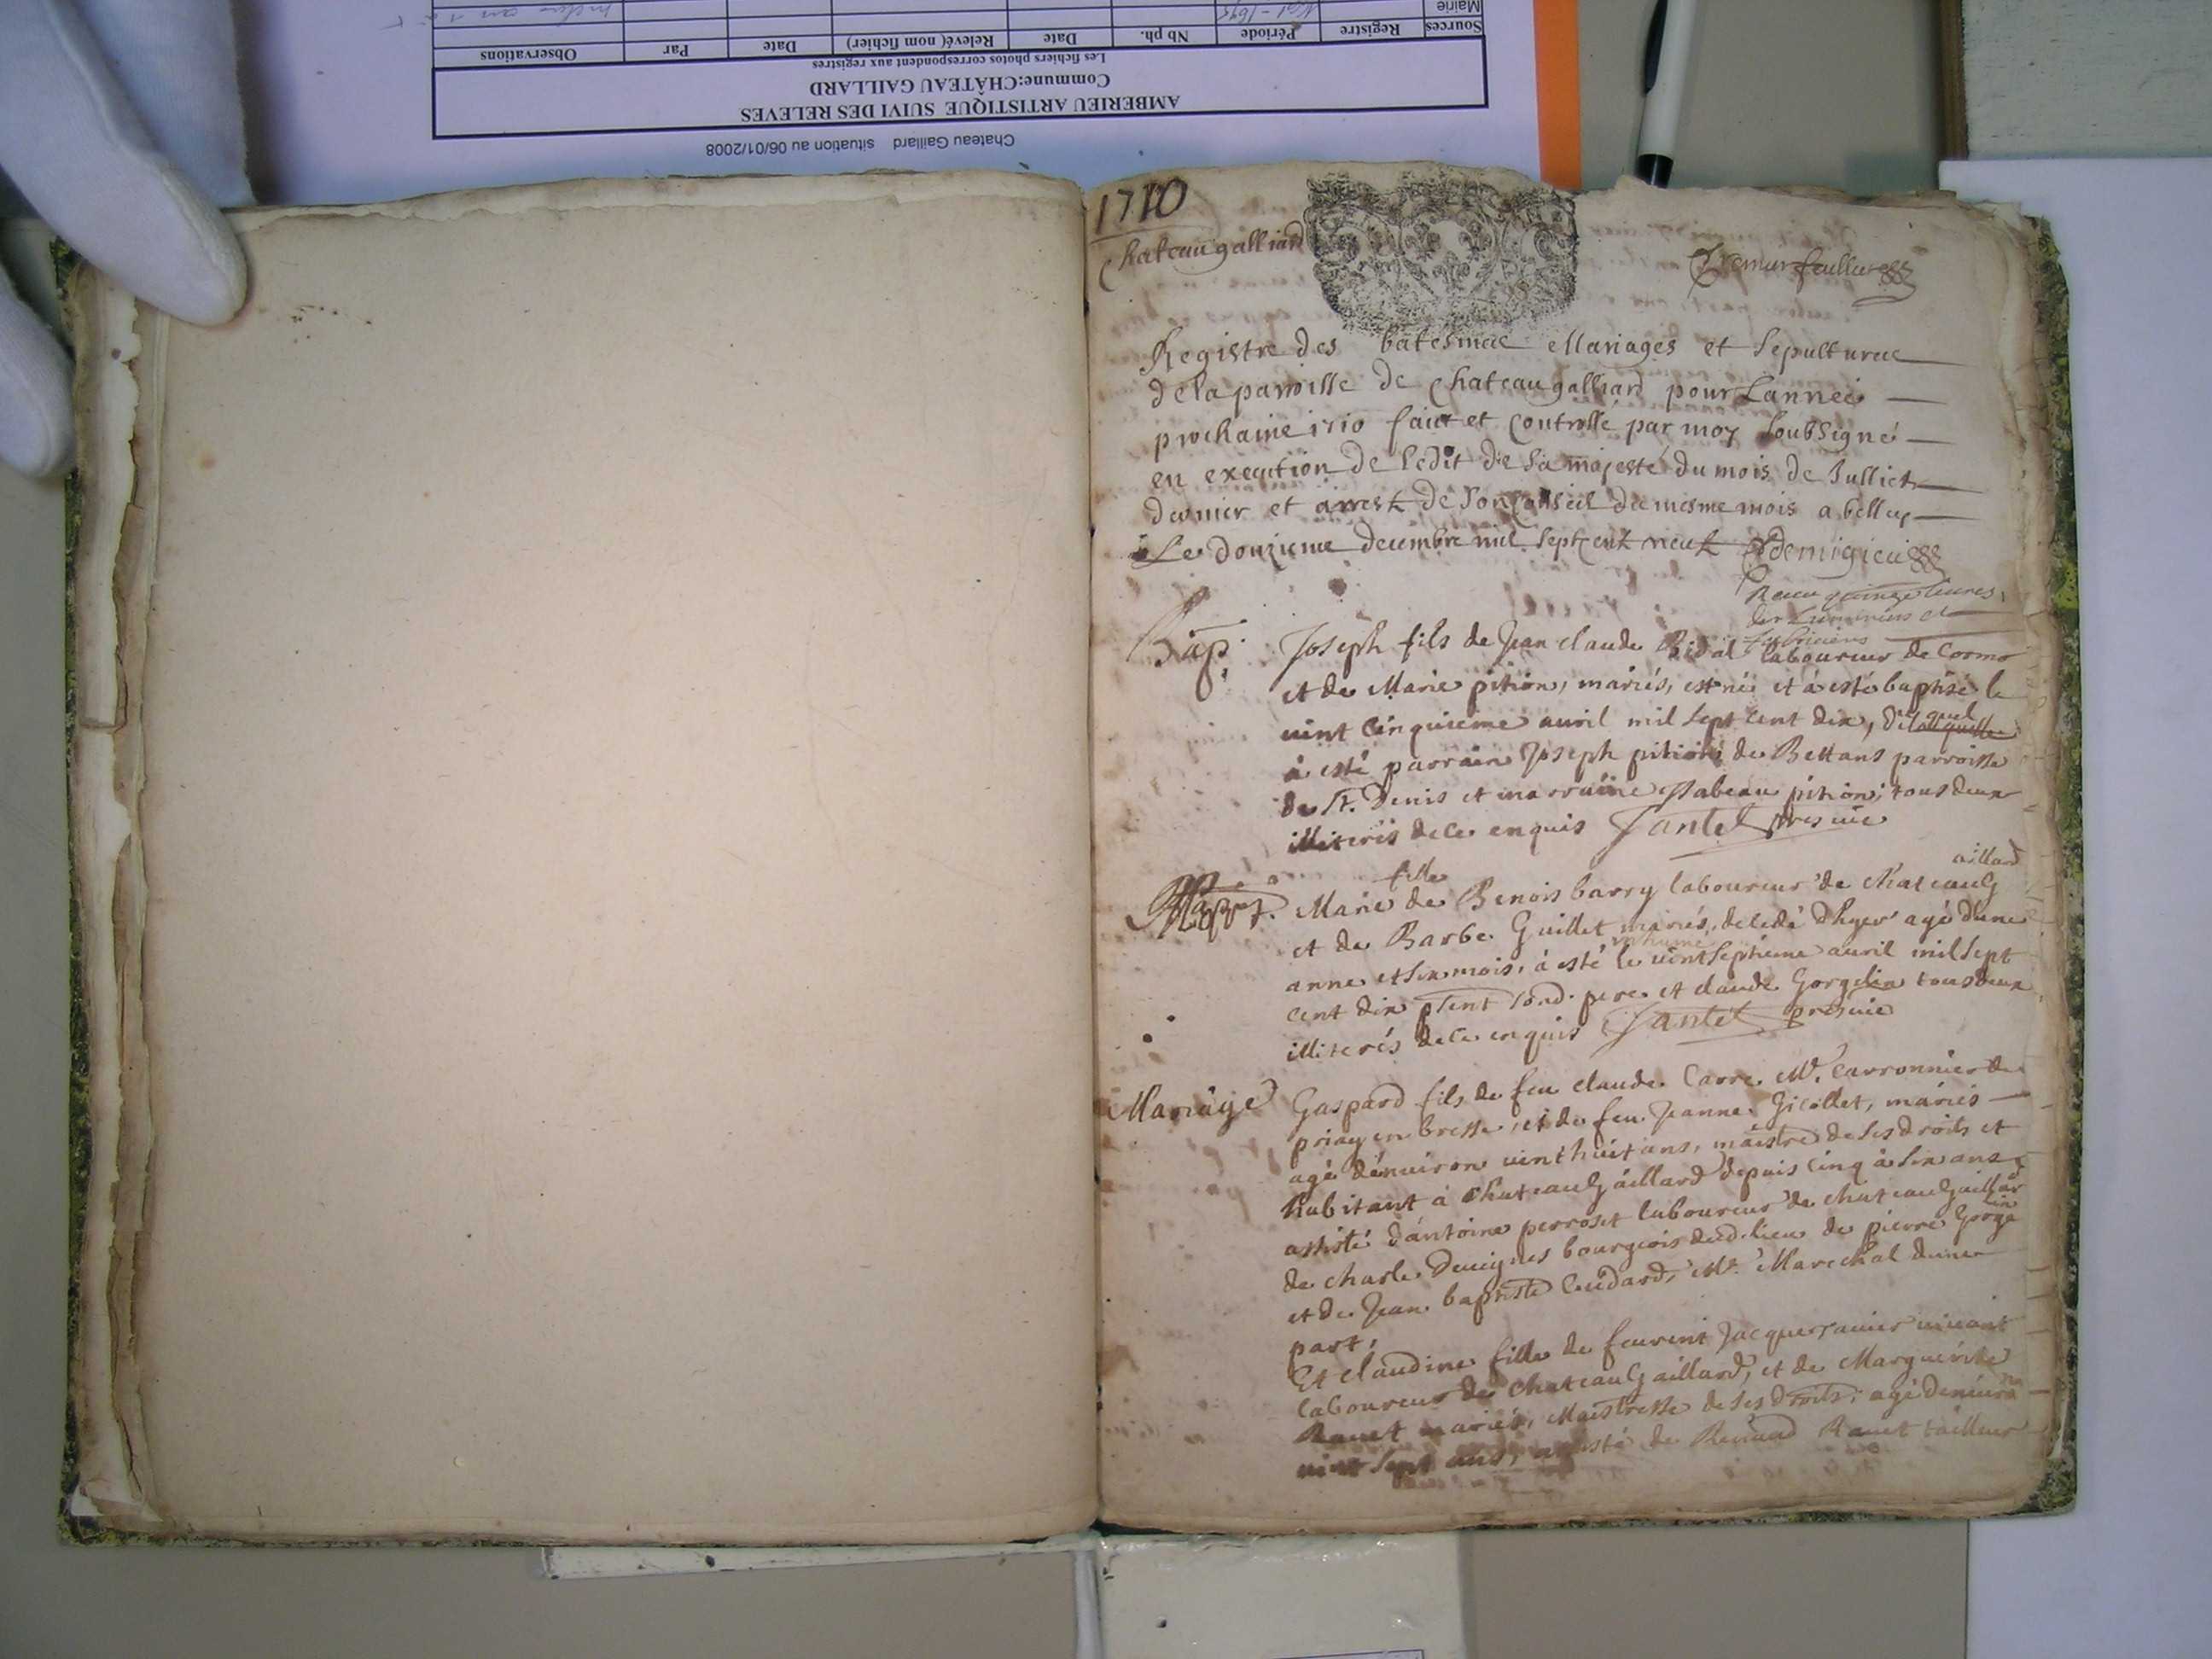 Chateau Gaillard situation au 06/01/2008
AMBERIEU ARTISTIQUE SUIVI DES RELEVES
Commune:CHÂTEAU GAILLARD
Les fichiers photos correspondent aux registres
Sources Registre Période Nb ph. Date Relevé( nom fichier) Date Par Observations
Mairie
1710
Chateaugalliard
Registre des batésmes Mariages et Sepultures
de la parroisse de Chateaugalliard pour Lannée
prochaine 1710 faict et Controllé par moy Soubsigné
en execution de Ledit de Sa majesté du mois de Julliet
dernier et arrest de Son Conseil du mesme mois a belley
Le douzieme decembre mil Sept cent neuf Demigieu
Receu quinze liures
Bap. Joseph fils de Jean claude Bidal laboureur de Cormo
et de Marie pition, mariés, est né et à esté baptisé le
uint cinquieme auril mil sept cent dix, duquel
à esté parrain Joseph pition de Bettans parroisse
de St. Denis et marraine Isabeau pition; tous deux
illiterés de ce enquis Jantet
fille aillard
Marie de Benois barry laboureur de ChateauG
et de Barbe Guillet mariés, decedé dhyer agé dune
inhumé
anne et six mois, à esté le uint septieme auril mil sept
cent dix psent sond. pere et claude Gorgelin tous deux
illiterés de ce enquis Jantet
Mariage Gaspard fils de feu claude Carre Mr. Carronnier de
priay en bresse, et de feu Jeanne Gicollet, mariés
agé dénuiron uint huit ans, maistre de ses droits et
habitant à ChateauGaillard depuis cinq à six ans
assisté dantoine perroset laboureur de ChateauGaillard
de charle bourgeois dud. lieu de pierre Gorgelin
et de Jean baptiste Cudard, Mr. Marechal dune
part,
Et claudine fille de feu Jacques uiuant
laboureur de ChateauGaillard, et de Marguerite
Rauet mariés, Maistresse de ses droits; agé denuiron
uint sept ans, assisté de Rauet tailleur